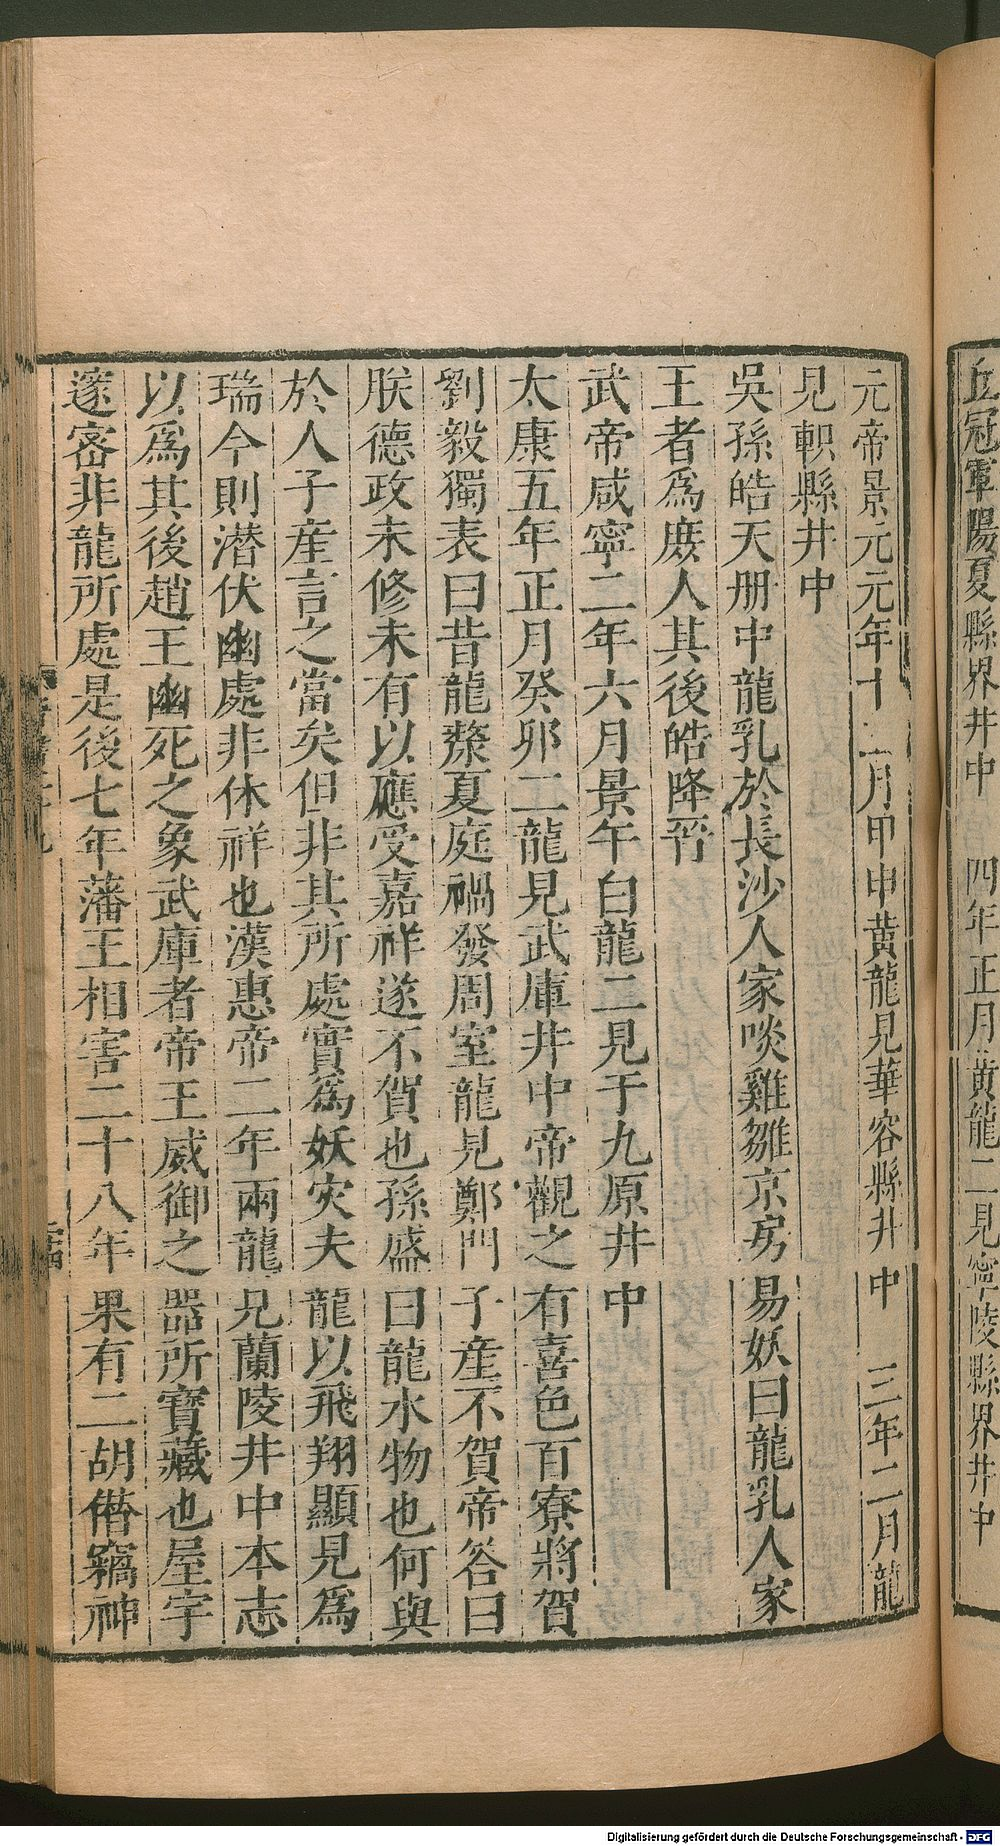 丘冠軍陽夏縣界井中 四年正月黃龍二見寧陵縣界井中
元帝景元元年十二月甲申黃龍見華容縣井中 三年二月龍
見軹縣井中
吳孫皓天册中龍乳於長沙人家啖雞雛京房易妖曰龍乳人家
王者爲庶人其後皓降晉
武帝咸寧二年六月景午白龍二見于九原井中
太康五年正月癸卯二龍見武庫井中帝觀之有喜色百寮將賀
劉毅獨表曰昔龍漦夏庭禍發周室龍見鄭門子產不賀帝答曰
朕德政未修未有以應受嘉祥遂不賀也孫盛曰龍水物也何與
於人子產言之當矣但非其所處實爲妖灾夫龍以飛翔顯見爲
瑞今則潜伏幽處非休祥也漢惠帝二年兩龍見蘭陵井中本志
以爲其後趙王幽死之象武庫者帝王威御之器所寶藏也屋宇
邃密非龍所處是後七年藩王相害二十八年果有二胡僭竊神
Digitalisierung gefördert durch die Deutsche Forschungsgemeinschaft - DFG